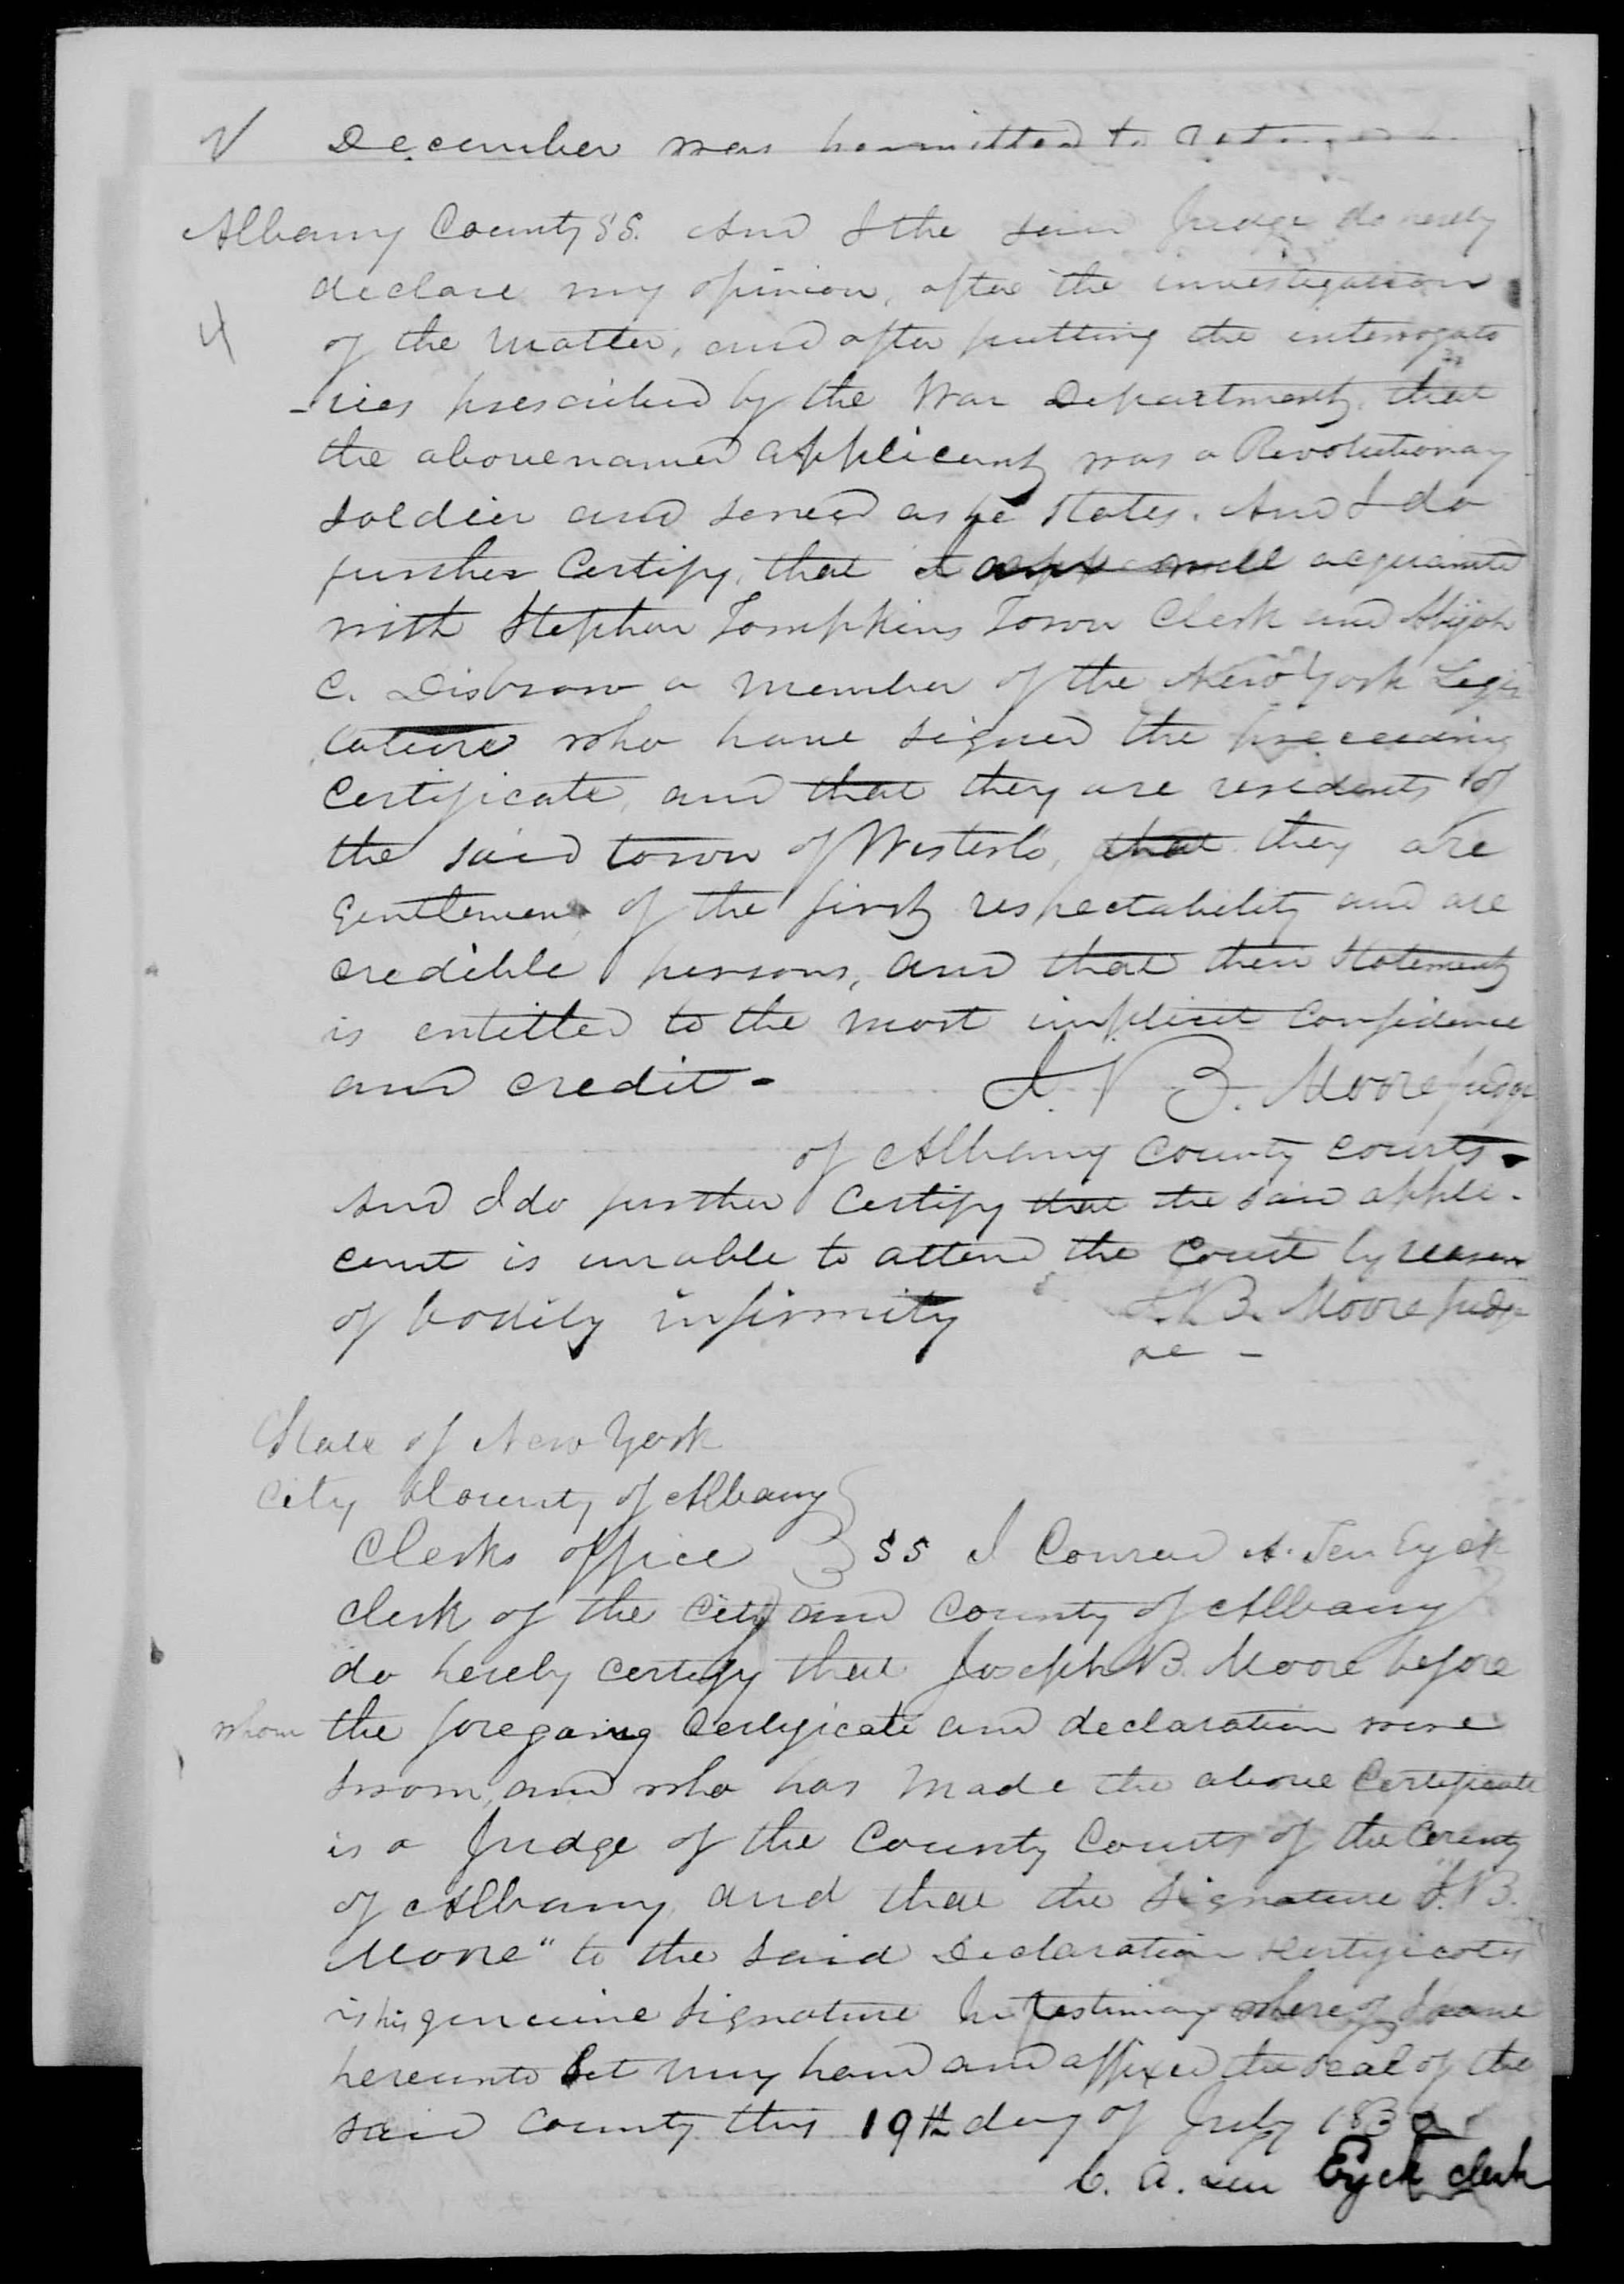 V December was permitted to
Albany County SS. And I the said Judge do hereby
declare my opinion, after the investigation
4
of the matter, and after putting the interrogato
-ries prescribed by the War Department, that
the abovenamed applicant was a Revolutionary
soldier and served as he states. And I do
further Certify, that I acquainted
with Stephen Tompkins Town Clerk and Abijah
C. Disbrow a member of the New York Legis
lature who have signed the preceeding
Certificate, and that they are residents of
the said town of Westerlo, that they are
Gentlemen of the first respectability and are
credible persons, and that their Statement
is entitled to the most implicit Confidence
and credit - J. B. Moore Judge
of Albany County Courts -
And I do further Certify that the said appli-
cant is unable to attend the Court by reason
of bodily infirmity J. B. Moore Judge
&c -
State of New York
City & County of Albany
Clerks office } SS I Conrad A. Ten Eyck
Clerk of the City and County of Albany
do hereby certify that Joseph B. Moore before
whom the foregoing Certificate and declaration were
sworn, and who has made the above Certificate
is a Judge of the County Courts of the County
of Albany, and that the Signature "J. B.
Moore" to the said Declaration & Certificates
is his genuine Signature In testimony whereof I have
hereunto Set my hand and affixed the seal of the
said County this 19th day of July 183
C. A. Ten Eyck clerk